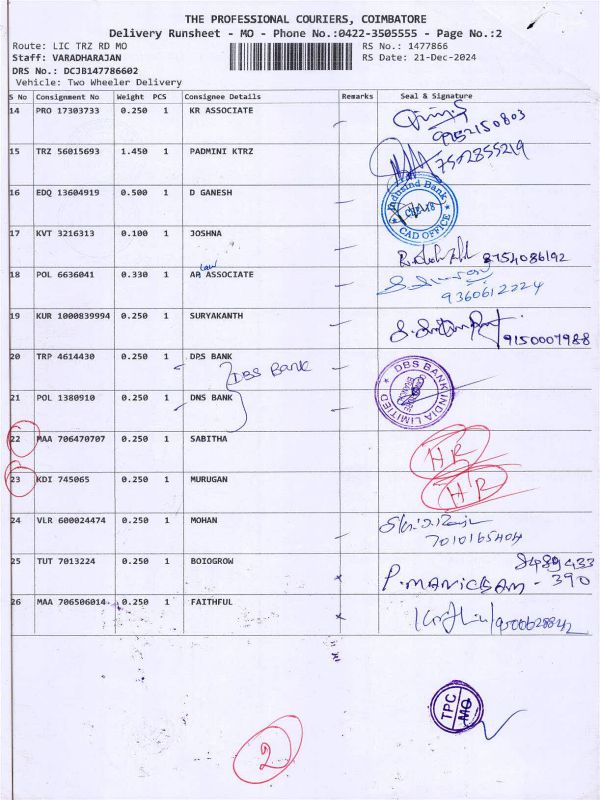 THE PROFESSIONAL COURIERS, COIMBATORE
Delivery Runsheet - MO - Phone No.:0422-3505555 - Page No.:2
Route: LIC TRZ RD MO RS No.: 1477866
Staff: VARADHARAJAN RS Date: 21-Dec-2024
DRS No.: DCJB147786602
Vehicle: Two Wheeler Delivery
S No Consignment No Weight PCS Consignee Details Remarks Seal & Signature
14 PRO 17303733 0.250 1 KR ASSOCIATE
9952150803
15 TRZ 56015693 1.450 1 PADMINI KTRZ 7502855219
16 EDQ 13604919 0.500 1 D GANESH
IndusInd Bank
CAD OFFICE
17 KVT 3216313 0.100 1 JOSHNA 8754086192
Law
18 POL 6636041 0.330 1 AR ASSOCIATE
9360612224
19 KUR 1000839994 0.250 1 SURYAKANTH 9150007988
20 TRP 4614430 0.250 1 DPS BANK
DBS BANK
DBS BANK INDIA LIMITED
21 POL 1380910 0.250 1 DNS BANK
22 MAA 706470707 0.250 1 SABITHA HR
23 KDI 745065 0.250 1 MURUGAN HR
24 VLR 600024474 0.250 1 MOHAN
7010165404
25 TUT 7013224 0.250 1 BOIOGROW 8489433
P. MANICKAM - 390
26 MAA 706506014 0.250 1 FAITHFUL 9500628842
TPC
MO
2